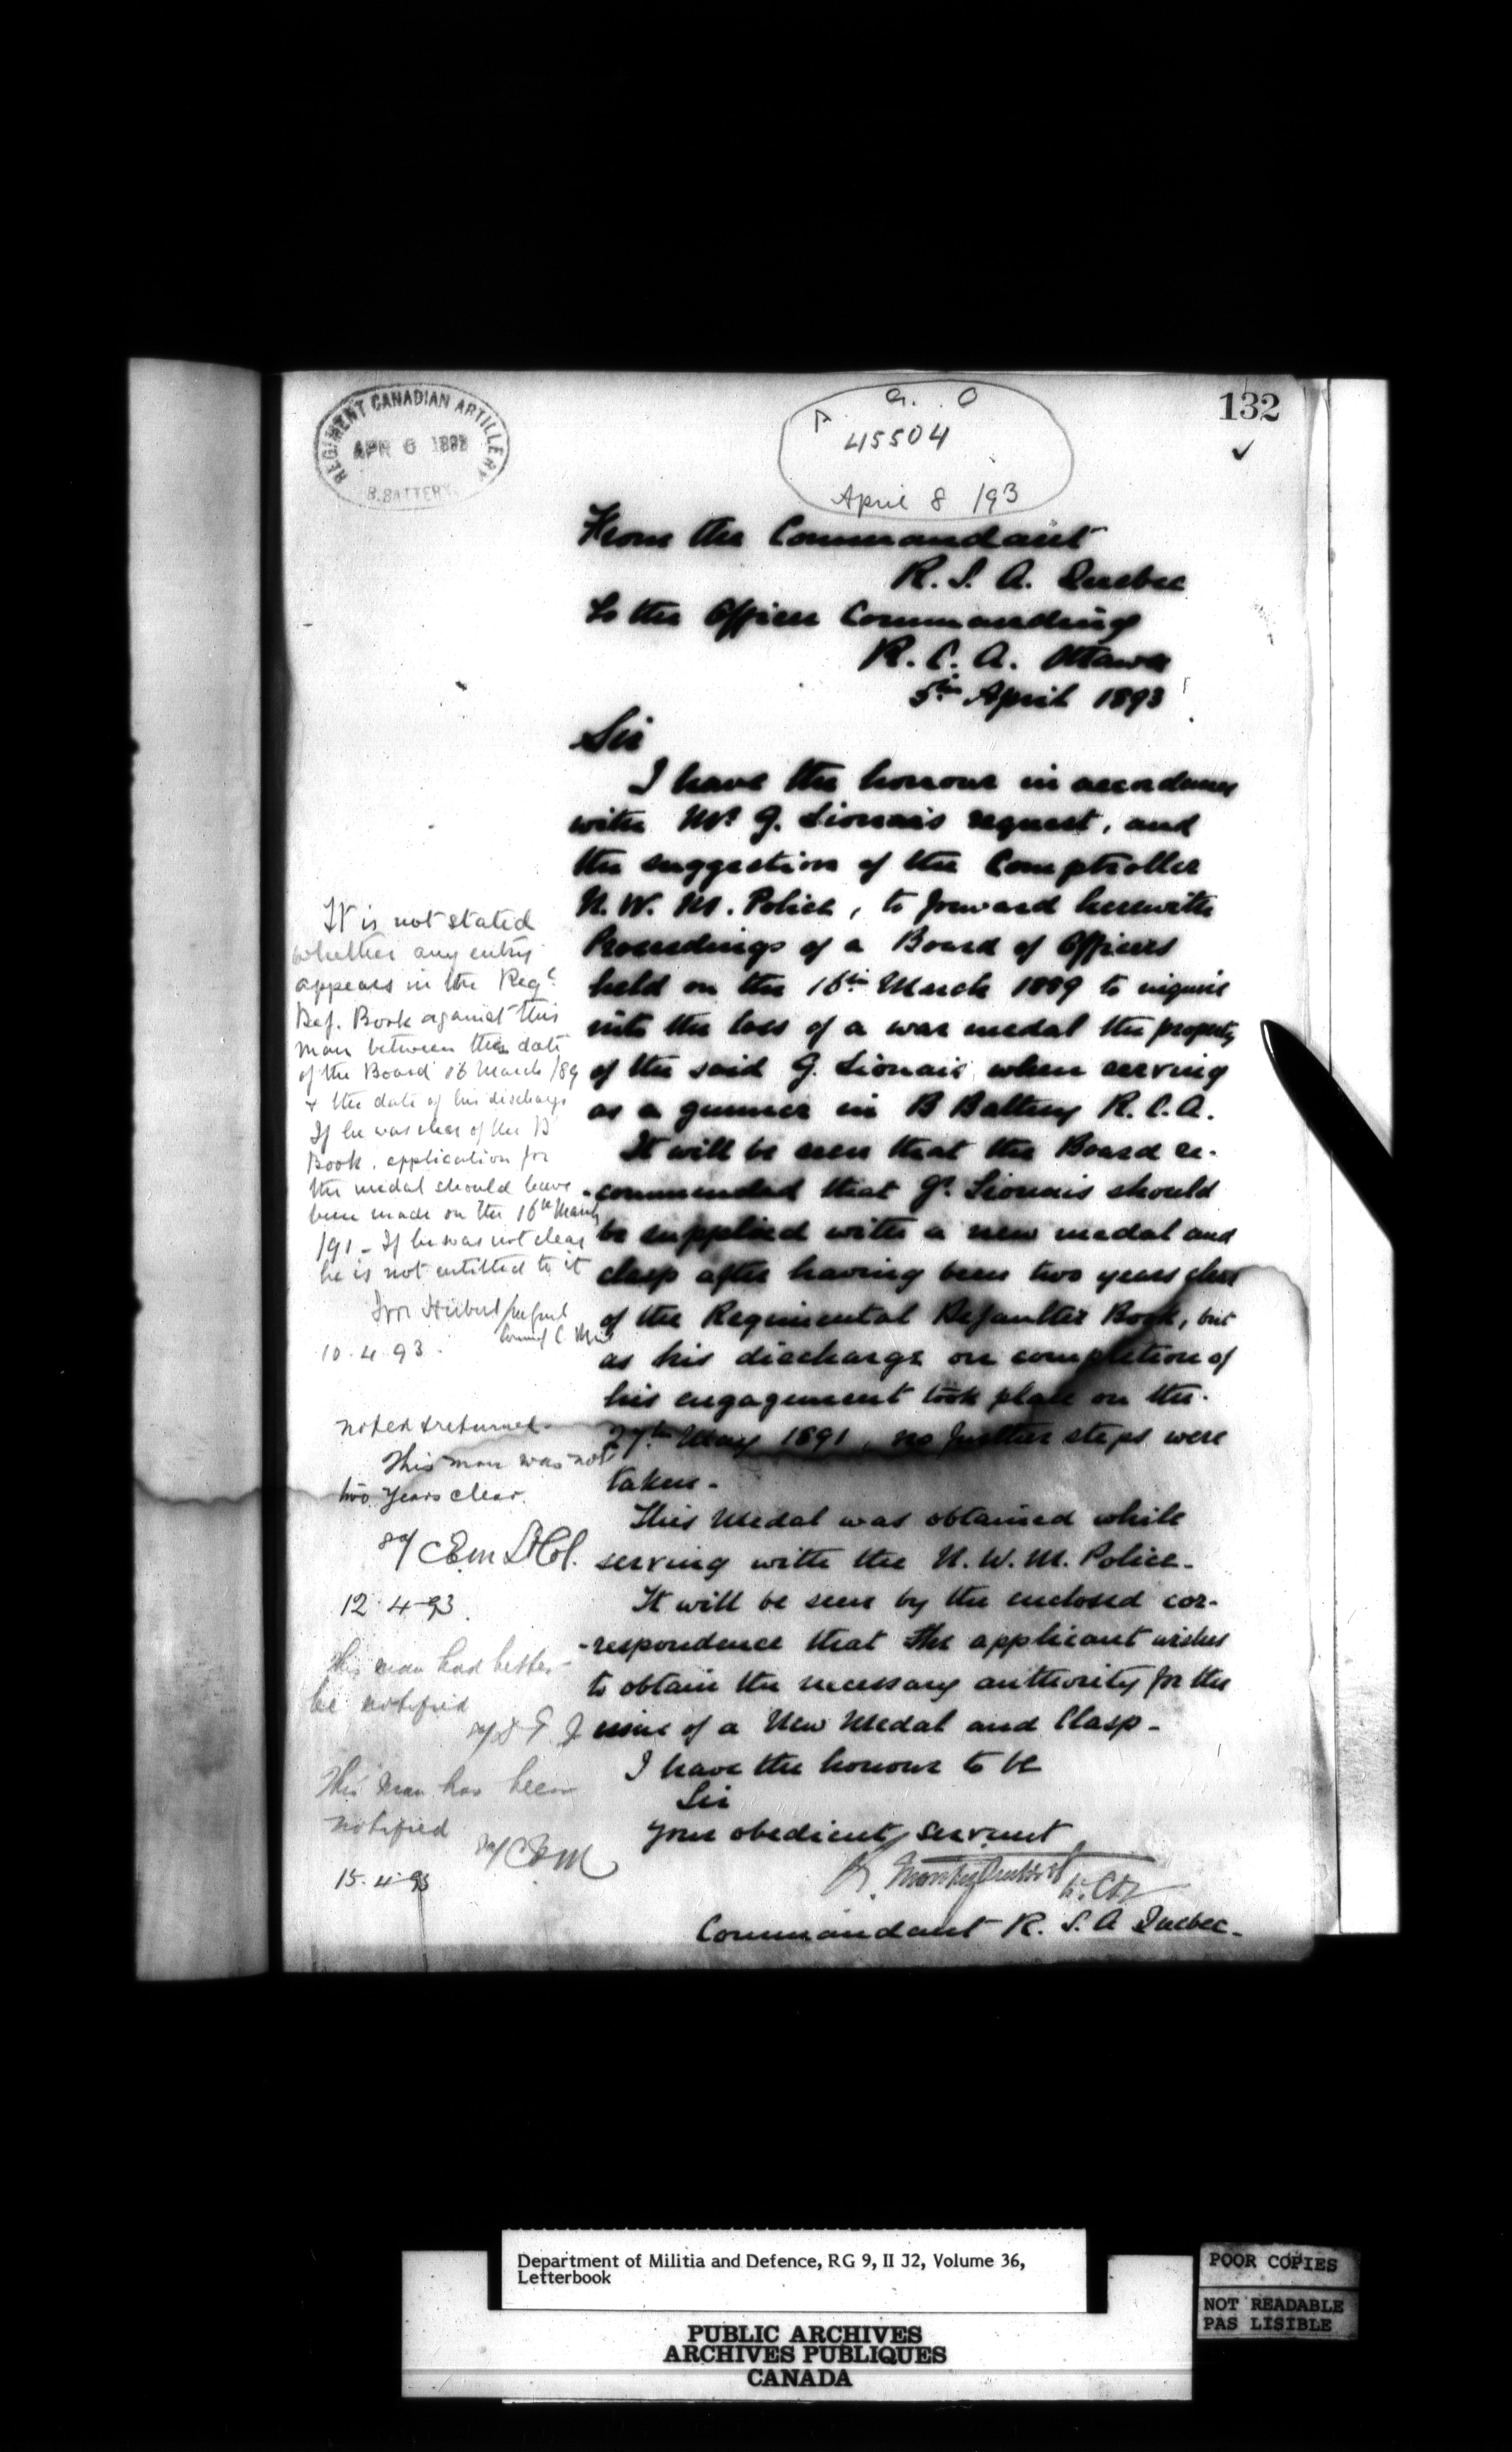 REGIMENT CANADIAN ARTILLERY
APR 6 1893
B. BATTERY.
A. G. O
45504
April 8 /93
132
From the Commandant
R. S. A. Quebec
To the Officer Commanding
R. C. A. Ottawa
5th April 1893
Sir
I have the honour in accordance
with Mr. G. Lionais request, and
the suggestion of the Comptroller
N. W. M. Police, to forward herewith
Proceedings of a Board of Officers
held on the 16th March 1889 to inquire
into the loss of a war medal the property
of the said G. Lionais when serving
as a gunner in B Battery R. C. A.
It will be seen that the Board re-
-commended that Gr. Lionais should
be supplied with a new medal and
clasp after having been two years clear
of the Regimental Defaulter Book, but
as his discharge on completion of
his engagement took place on the
27th May 1891, no further steps were
taken -
This Medal was obtained while
serving with the N. W. M. Police -
It will be seen by the enclosed cor-
-respondence that the applicant wishes
to obtain the necessary authority for the
issue of a New Medal and Clasp -
I have the honour to be
Sir
Your obedient servant
Lt. Col
Commandant R. S. A Quebec -
It is not stated
whether any entry
appears in the Regl.
Def. Book against this
man between the date
of the Board 16 March /89
& the date of his discharge
If he was clear of the D
Book, application for
the medal should have
been made on the 16th March
/91 - If he was not clear
he is not entitled to it
Ivor Herbert
10. 4. 93.
noted & returned -
This man was not
two years clear.
sd/ C.E.M Lt Col.
12. 4 - 93.
This man had better
be notified
This man has been
notified
sd/ C E M
15. 4 93
Department of Militia and Defence, RG 9, II J2, Volume 36,
Letterbook
PUBLIC ARCHIVES
ARCHIVES PUBLIQUES
CANADA
POOR COPIES
NOT READABLE
PAS LISIBLE